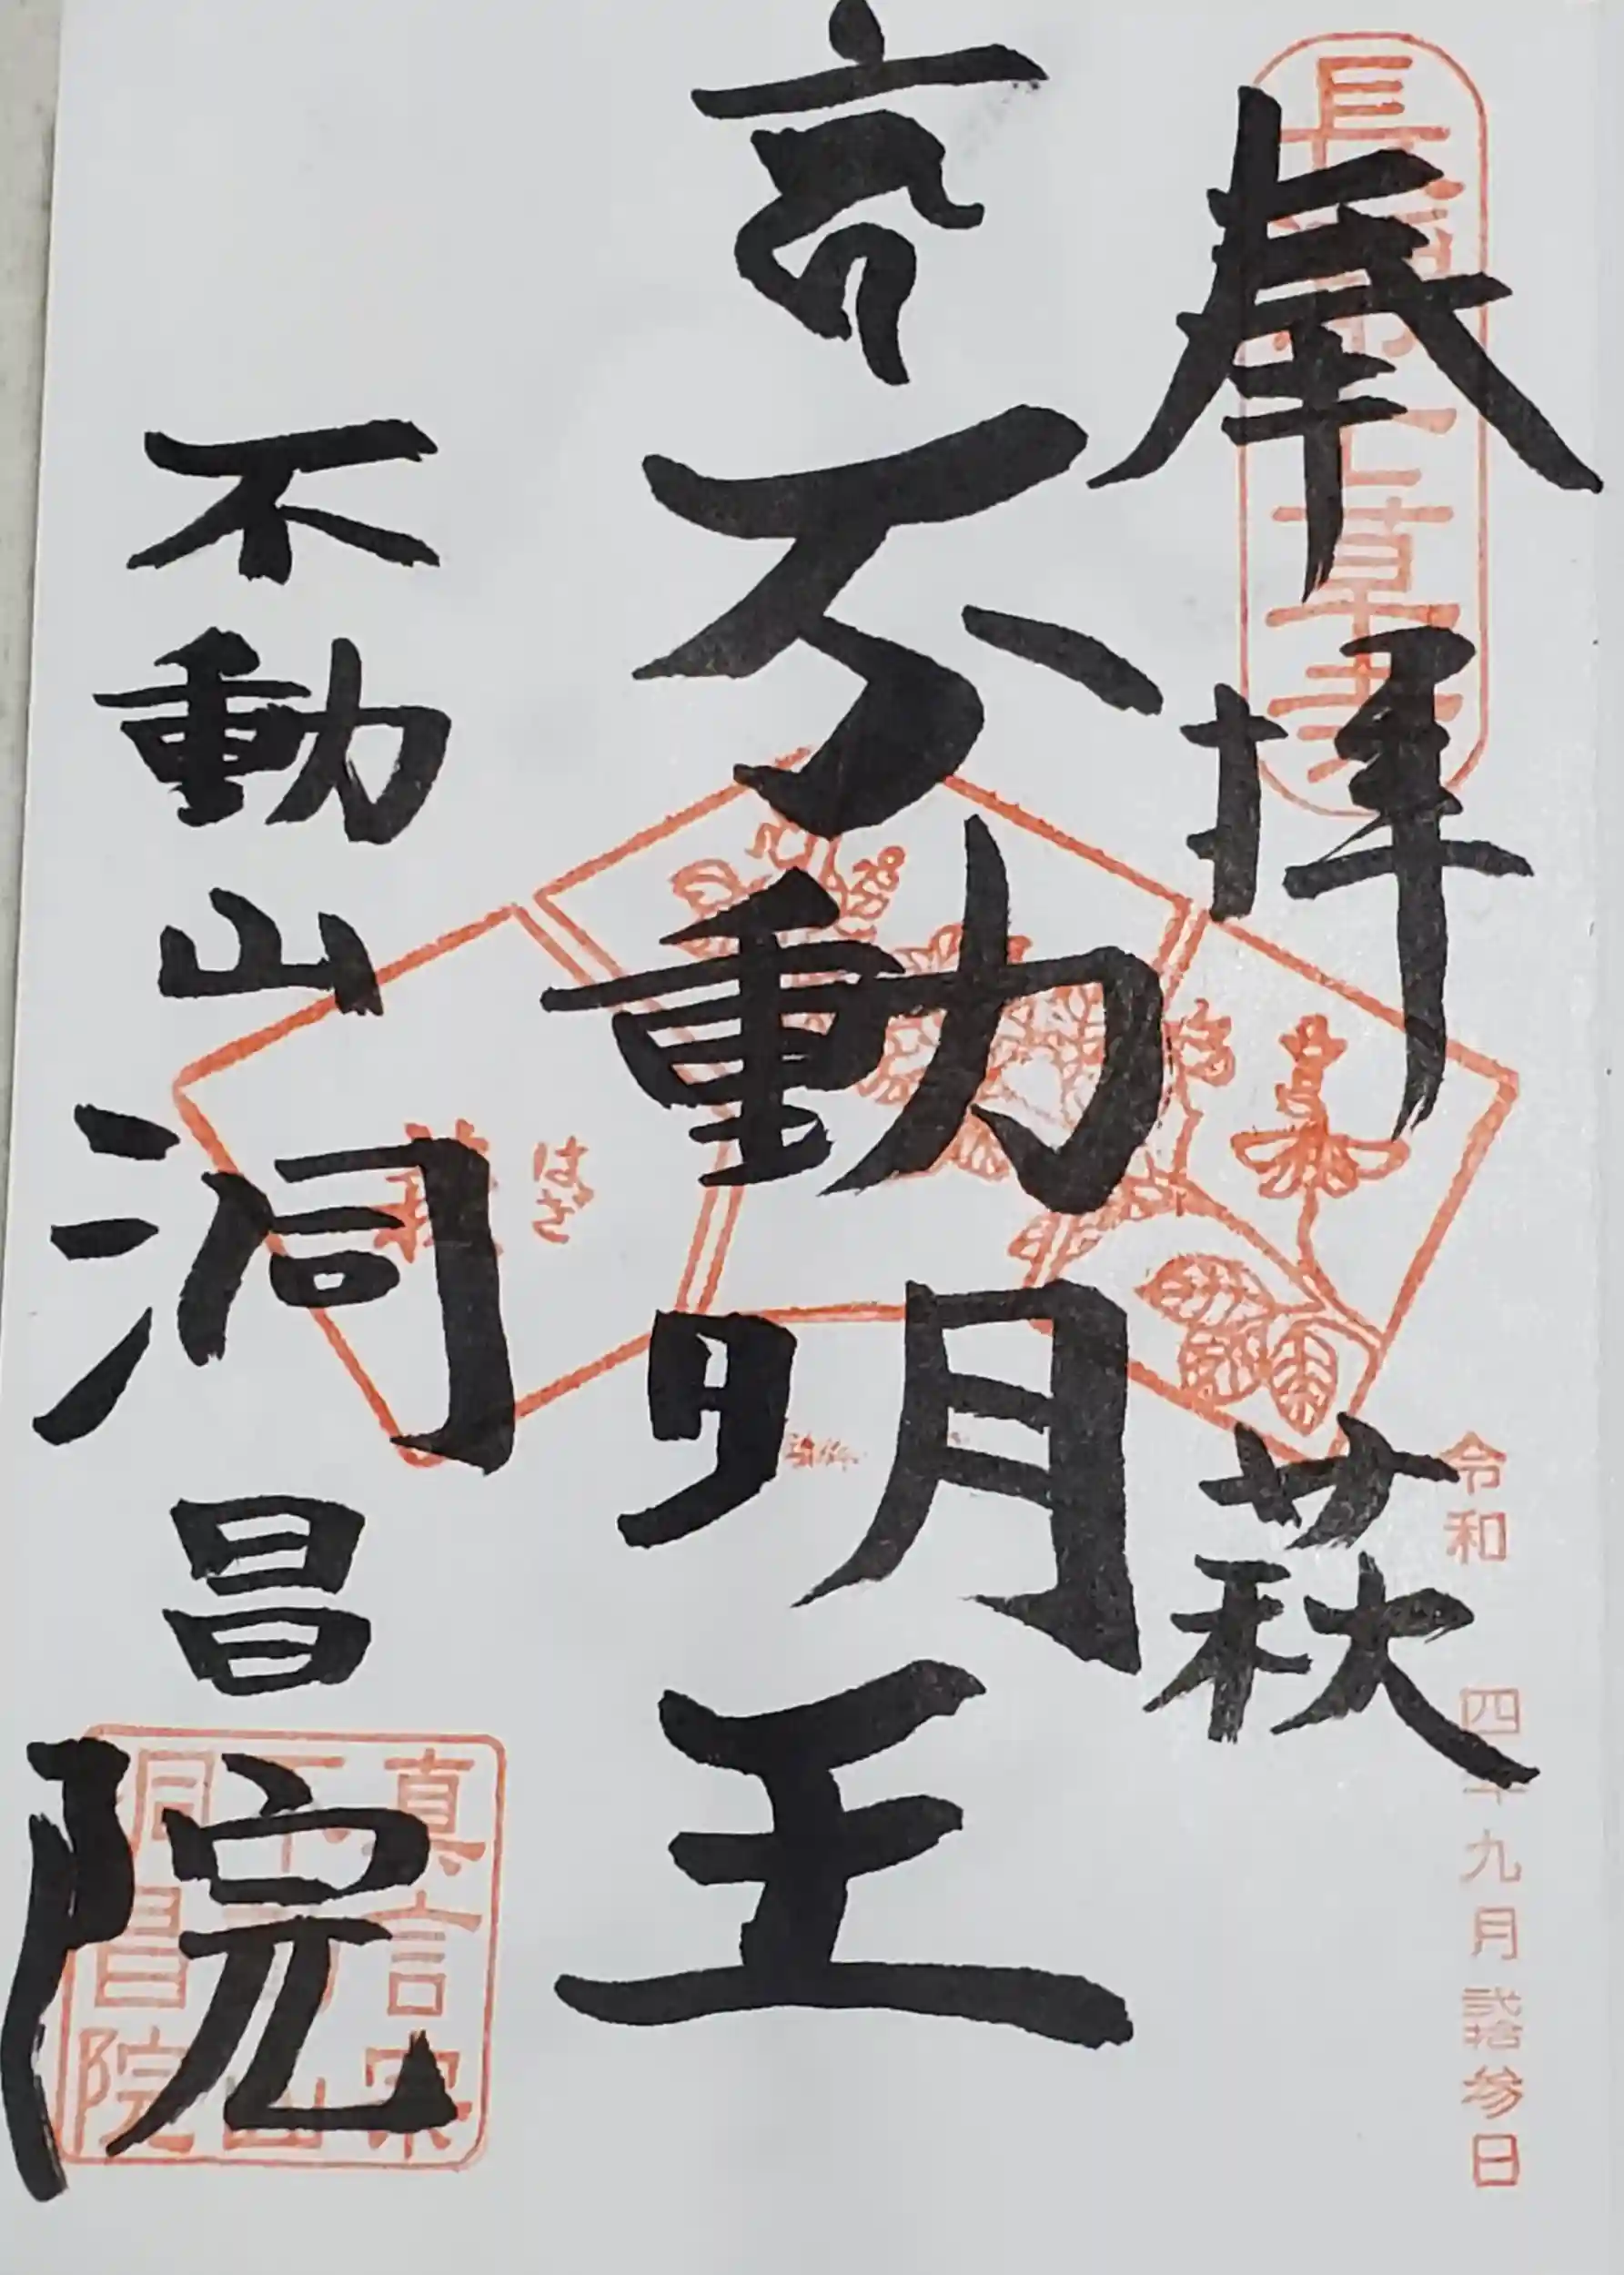 奉拝
萩
長瀞七草寺
令和四年九月弐拾参日
不動明王
はぎ
萩
不動山
洞昌院
真言宗
不動山
洞昌院